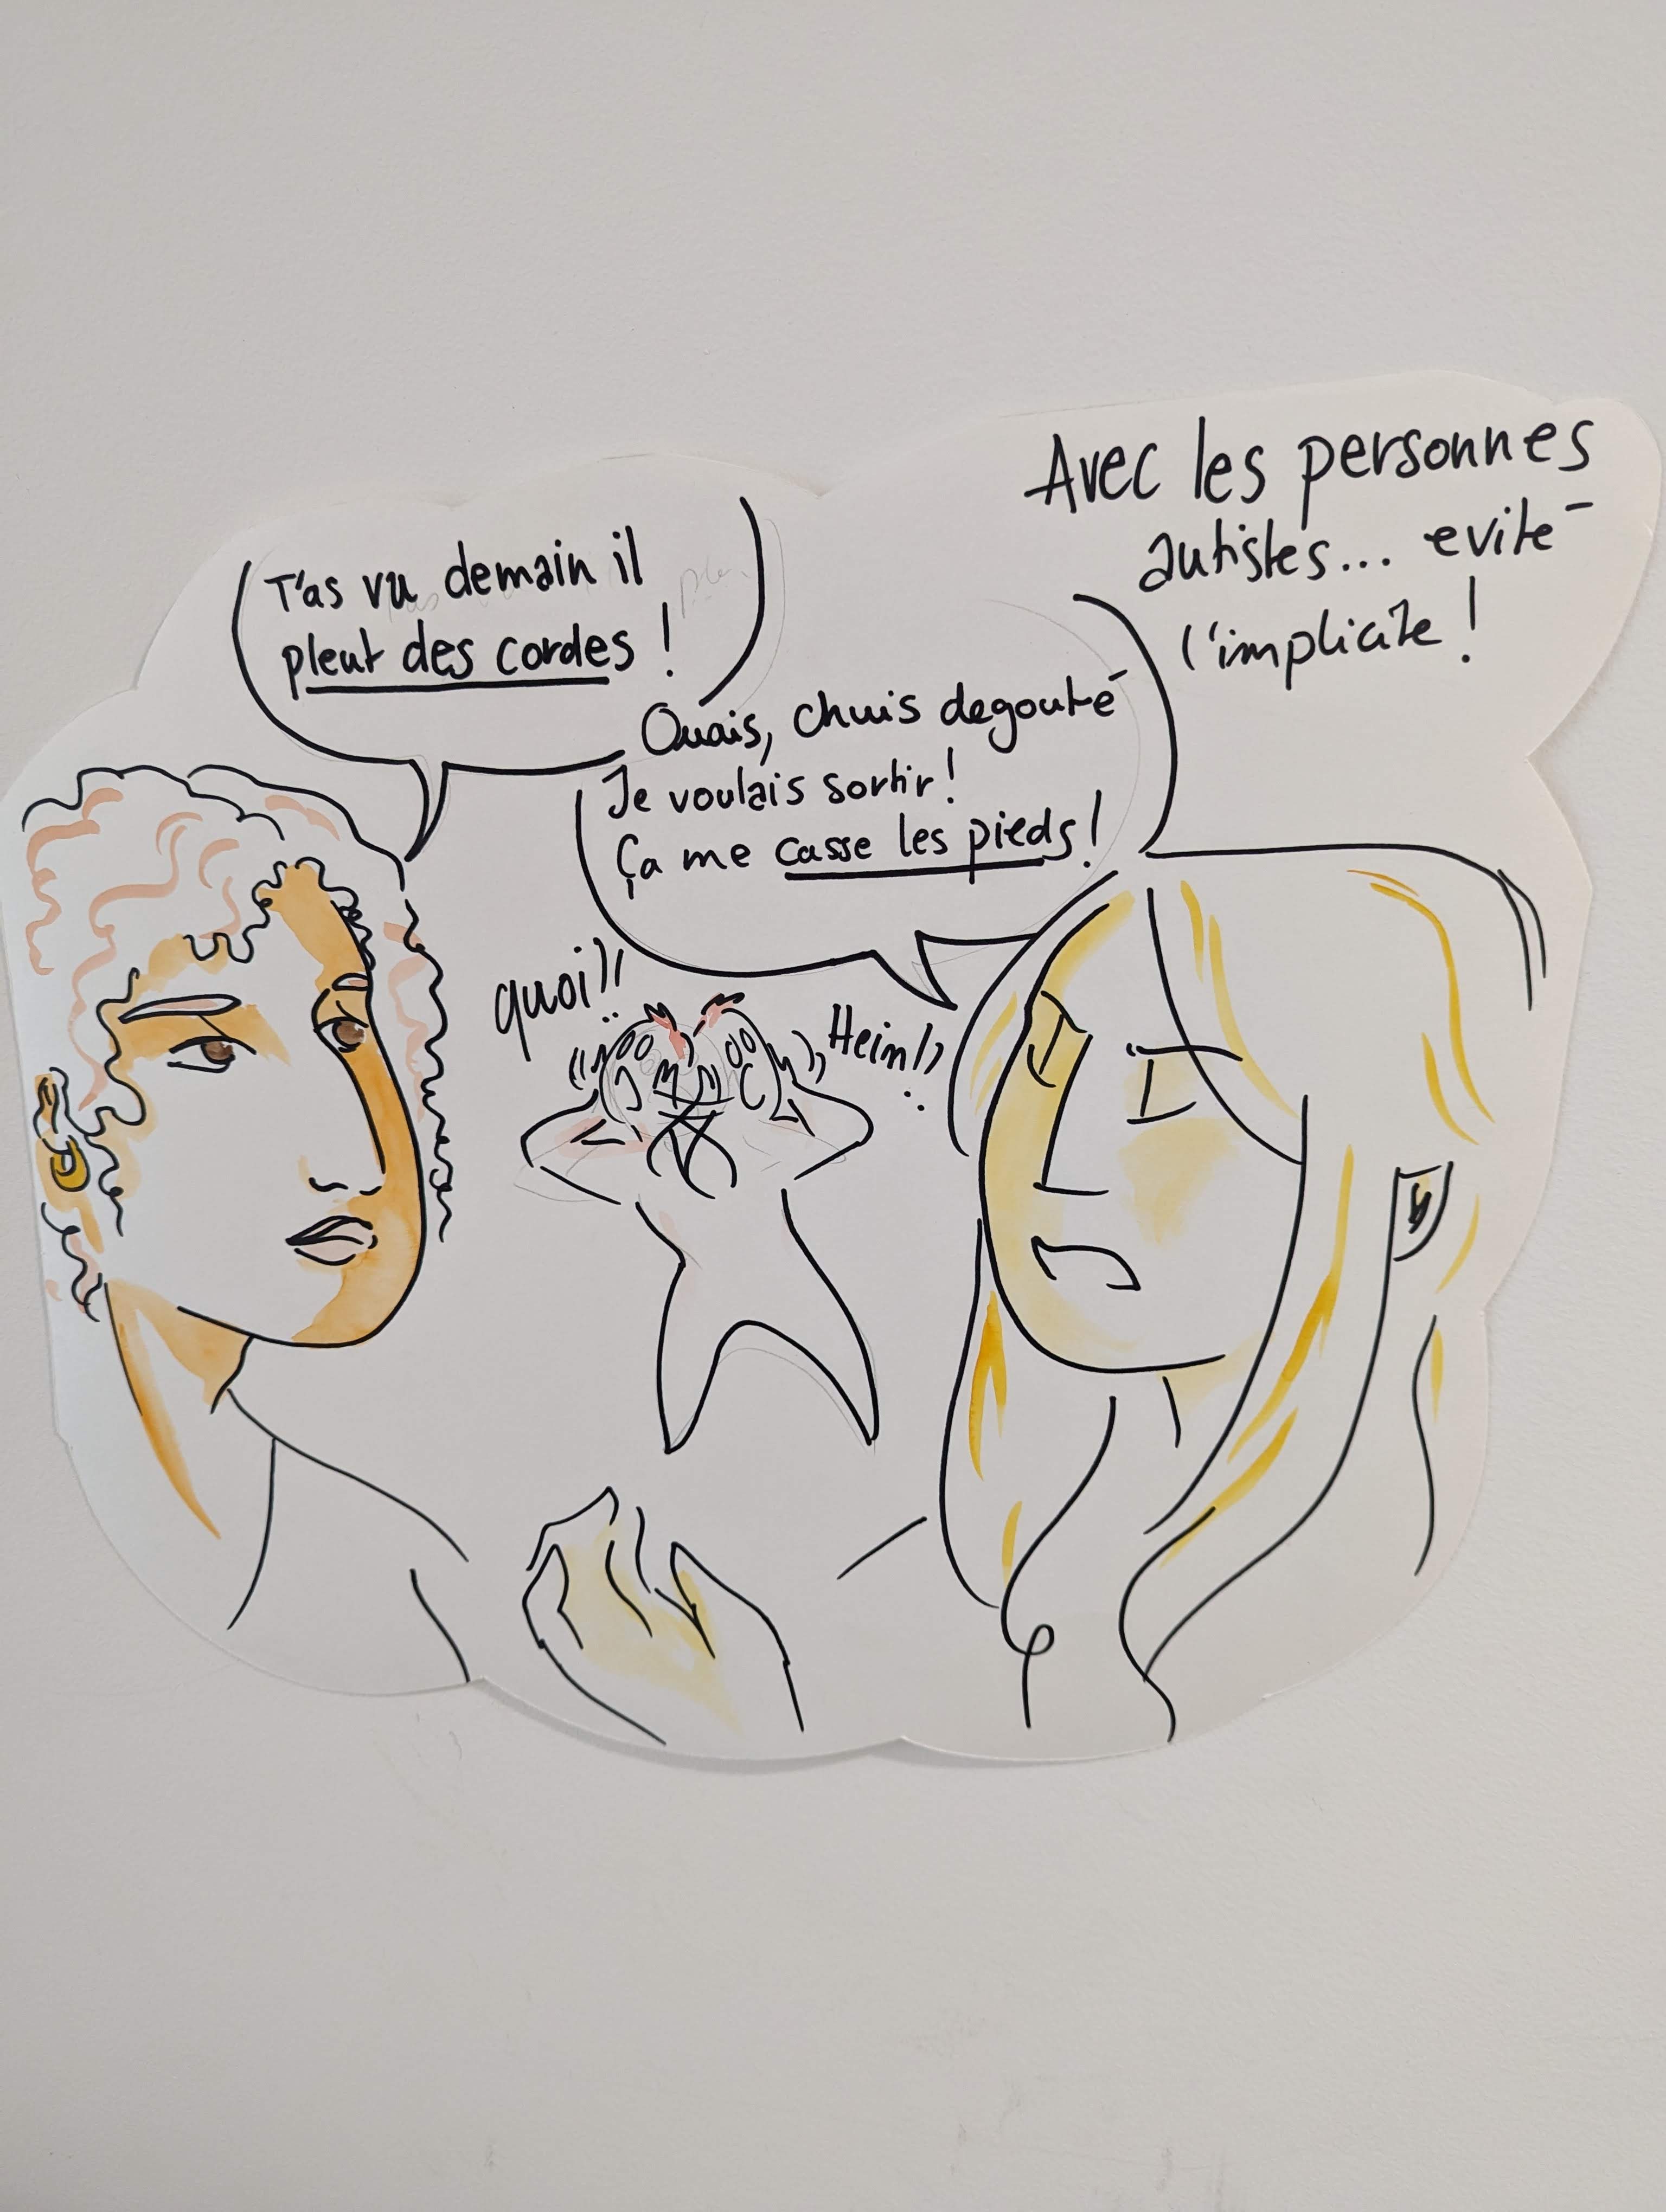 Avec les personnes
autistes... evité
l'implicite !
T'as vu demain il
pleut des cordes !
Ouais, chuis degouté
Je voulais sortir !
Ça me casse les pieds !
quoi !!
Hein !!